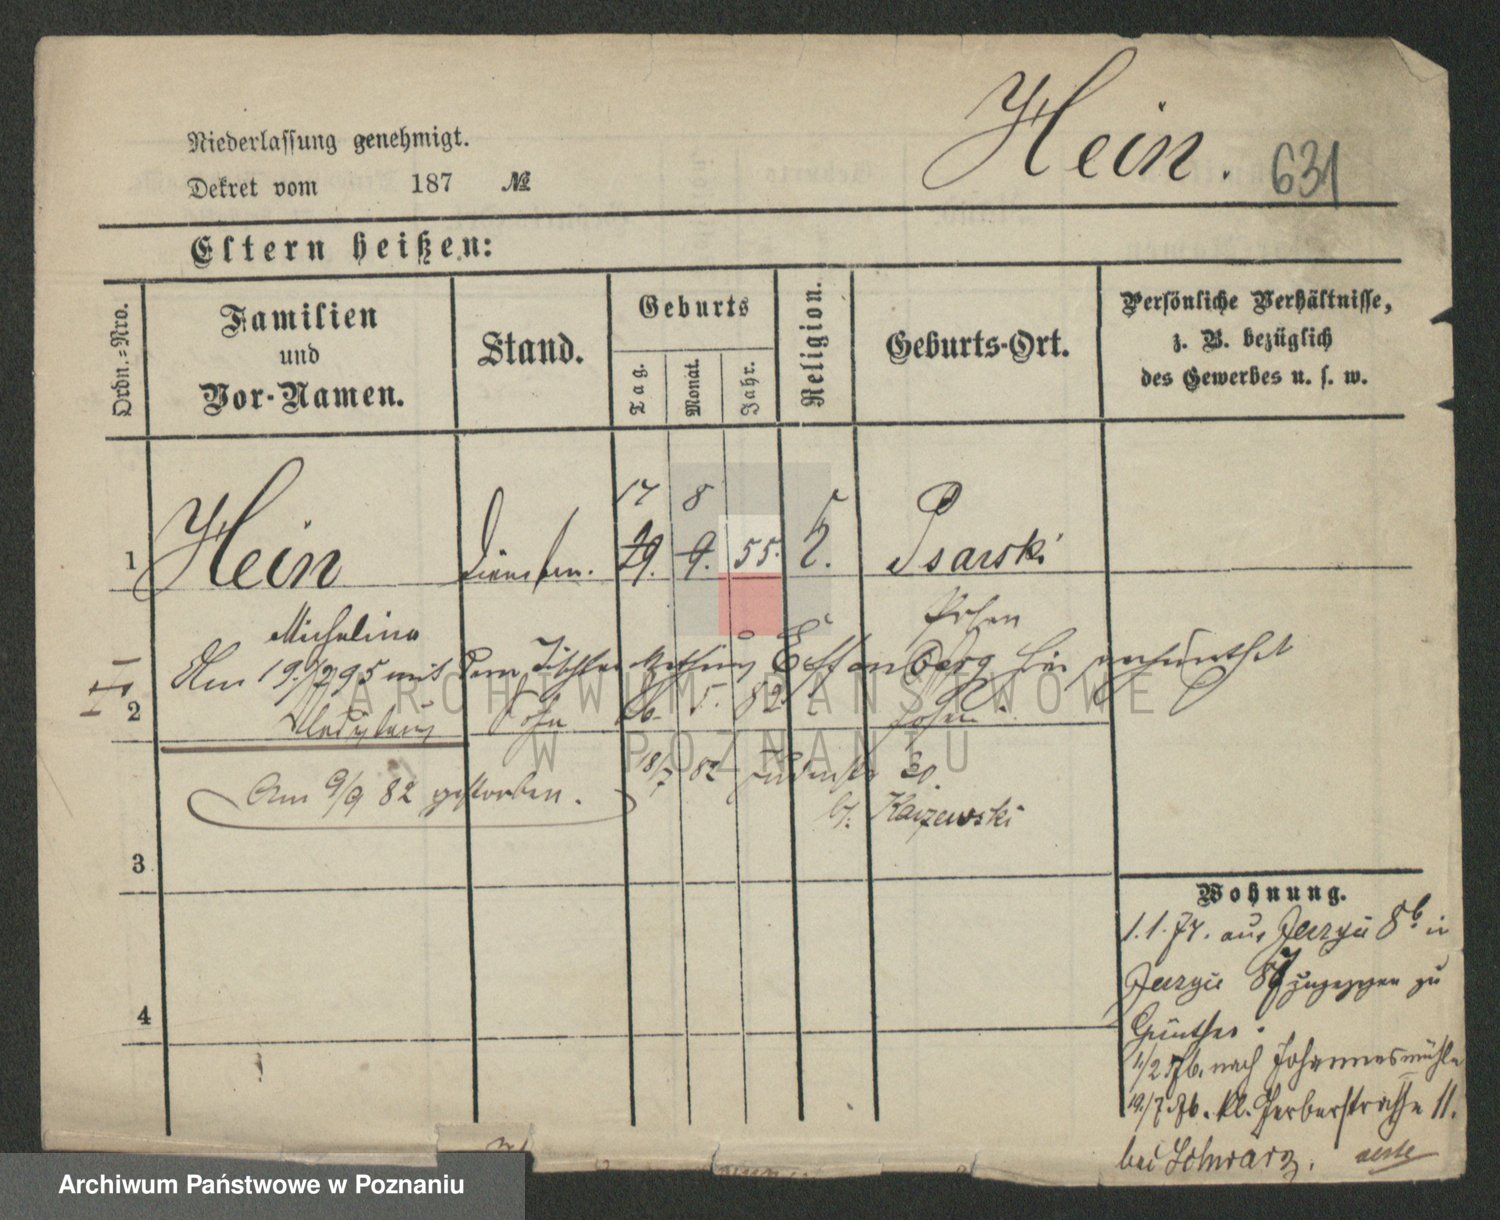 Hein. 631
Niederlassung genehmigt.
Dekret vom 187 №
Eltern heißen:
Ordn.=Nro.
Familien
und
Vor-Namen.
Stand.
Geburts
Tag.
Monat.
Jahr.
Religion.
Geburts-Ort.
Persönliche Verhältnisse,
z. B. bezüglich
des Gewerbes u. s. w.
17 8
1 Hein 29. 9. 55. Psarski
Michalina Posen
Am 19./7 95 mit dem Tischler Effenberg hier
2 Sohn 26. 5. 82. Posen
18/7 82 20
Am 9/9 82 gestorben.
b/. Kaczewski
3
4
Wohnung.
1. 1. 74. aus Jerzyce 8b in
Jerzyce 87 zugezogen zu
Günther.
1/2 76. nach Johannesmühle
19./7. 76. kl. Gerberstraße 11.
bei Schwarz.
ARCHIWUM PAŃSTWOWE
W POZNANIU
Archiwum Państwowe w Poznaniu